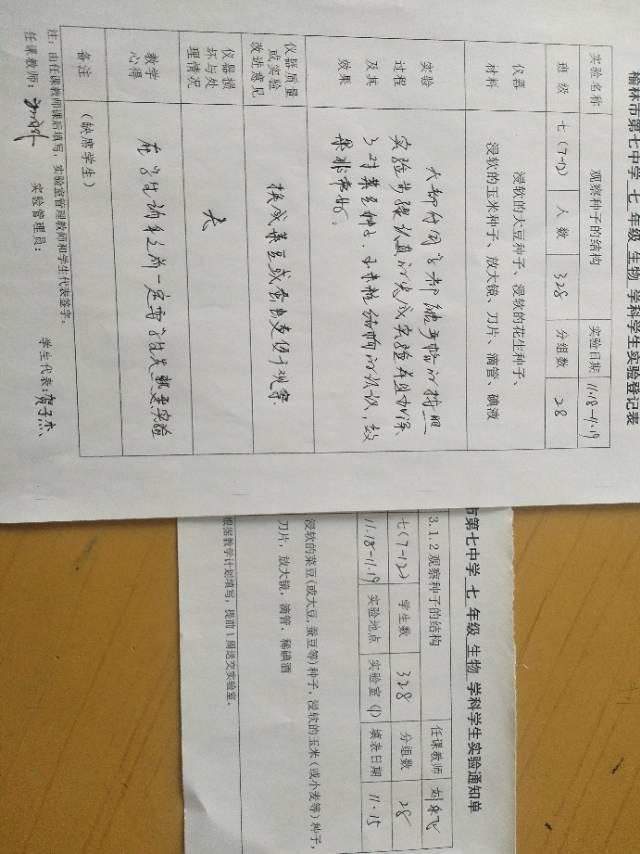 榆林市第七中学 七 年级 生物 学科学生实验登记表
实验名称 观察种子的结构 实验日期 11.18-11.19
班级 七(7-12) 人数 328 分组数 28
仪器材料 浸软的大豆种子、浸软的花生种子、
浸软的玉米种子、放大镜、刀片、滴管、碘液
实验过程及其效果 大部分同学都能严格的按照
实验步骤认真的完成实验并且加深
了对菜豆种子、玉米种结构的认识,效
果非常好。
仪器质量或实验改进意见 换成菜豆或蚕豆更便于观察
仪器损坏与处理情况 无
教学心得 在学生动手之前一定要学生先熟悉实验
备注 (缺席学生)
注:由任课教师课后填写,实验室管理教师和学生代表签字。
任课教师: 实验管理员: 学生代表:贺子杰
市第七中学 七 年级 生物 学科学生实验通知单
3.1.2观察种子的结构 任课教师
七(7-12) 学生数 328 分组数 28
11.18-11.19 实验地点 实验室(1) 填表日期 11.15
浸软的菜豆(或大豆,蚕豆等)种子,浸软的玉米(或小麦等)种子,
刀片,放大镜,滴管,稀碘酒
根据教学计划填写,提前1周送交实验室。